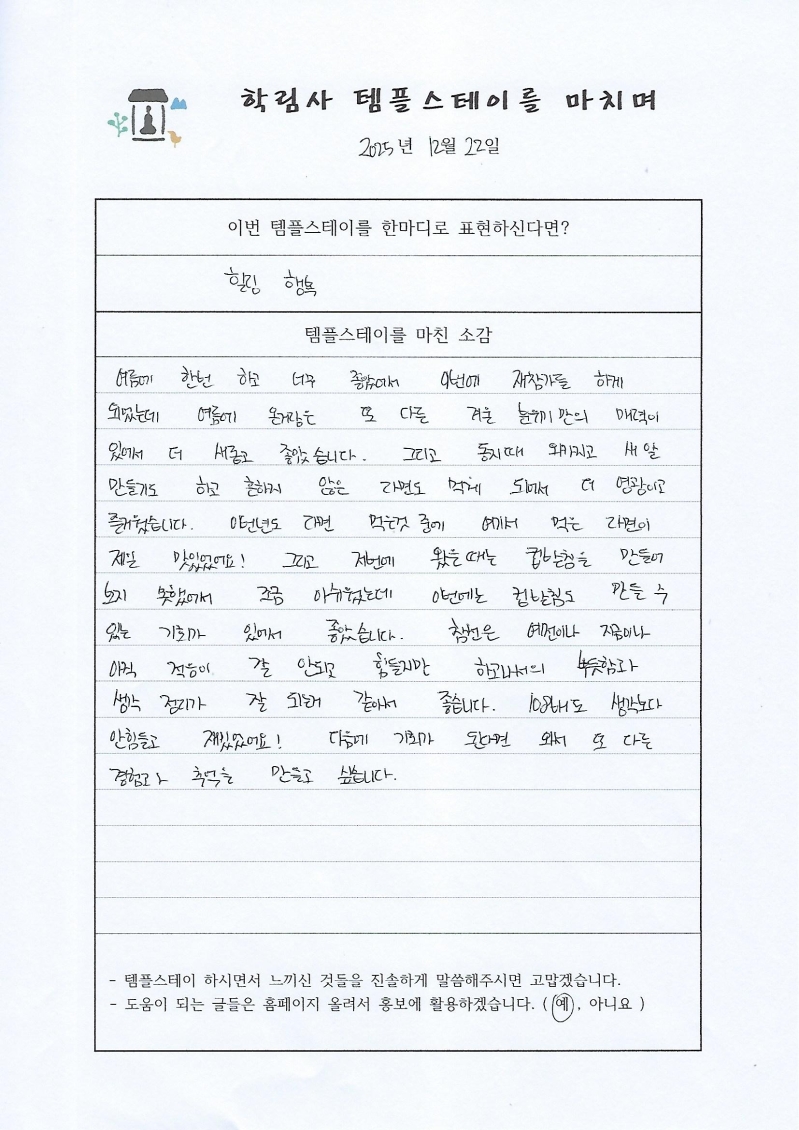 학림사 템플스테이를 마치며
2025년 12월 22일
이번 템플스테이를 한마디로 표현하신다면?
힐링 행복
템플스테이를 마친 소감
여름에 한번 하고 너무 좋았어서 이번에 재참가를 하게
되었는데 여름에 온거랑은 또 다른 겨울 분위기만의 매력이
있어서 더 새롭고 좋았습니다. 그리고 동지때 와가지고 새알
만들기도 하고 흔하지 않은 라면도 먹게 되어서 더 영광이고
즐거웠습니다. 이번년도 라면 먹은것 중에 여기서 먹은 라면이
제일 맛있었어요! 그리고 저번에 왔을때는 컵받침을 만들어
보지 못했어서 조금 아쉬웠는데 이번에는 컵받침도 만들 수
있는 기회가 있어서 좋았습니다. 참선은 예전이나 지금이나
아직 적응이 잘 안되고 힘들지만 하고나서의 뿌듯함과
생각 정리가 잘 되는거 같아서 좋습니다. 108배도 생각보다
안힘들고 재밌었어요! 다음에 기회가 된다면 와서 또 다른
경험과 추억을 만들고 싶습니다.
- 템플스테이 하시면서 느끼신 것들을 진솔하게 말씀해주시면 고맙겠습니다.
- 도움이 되는 글들은 홈페이지 올려서 홍보에 활용하겠습니다. ( 예 , 아니요 )